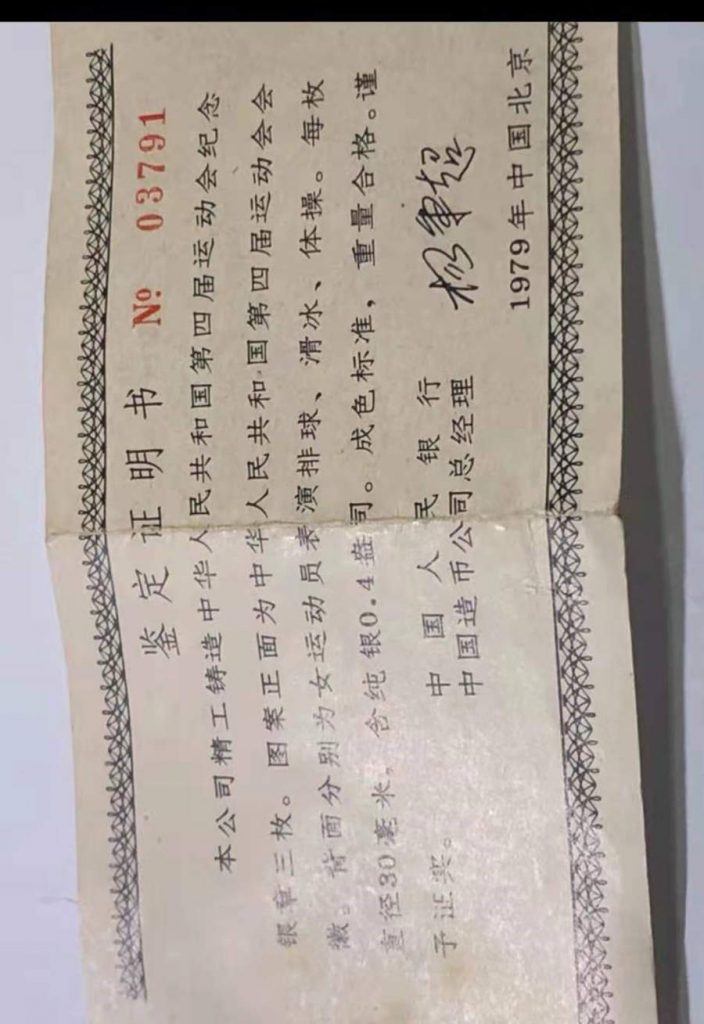 鉴定证明书 № 03791
本公司精工铸造中华人民共和国第四届运动会纪念
银章三枚。图案正面为中华人民共和国第四届运动会会
徽。背面分别为女运动员表演排球、滑冰、体操。每枚
直径30毫米，含纯银0.4盎司。成色标准，重量合格。谨
予证实。
中国人民银行
中国造币公司总经理
1979年中国北京